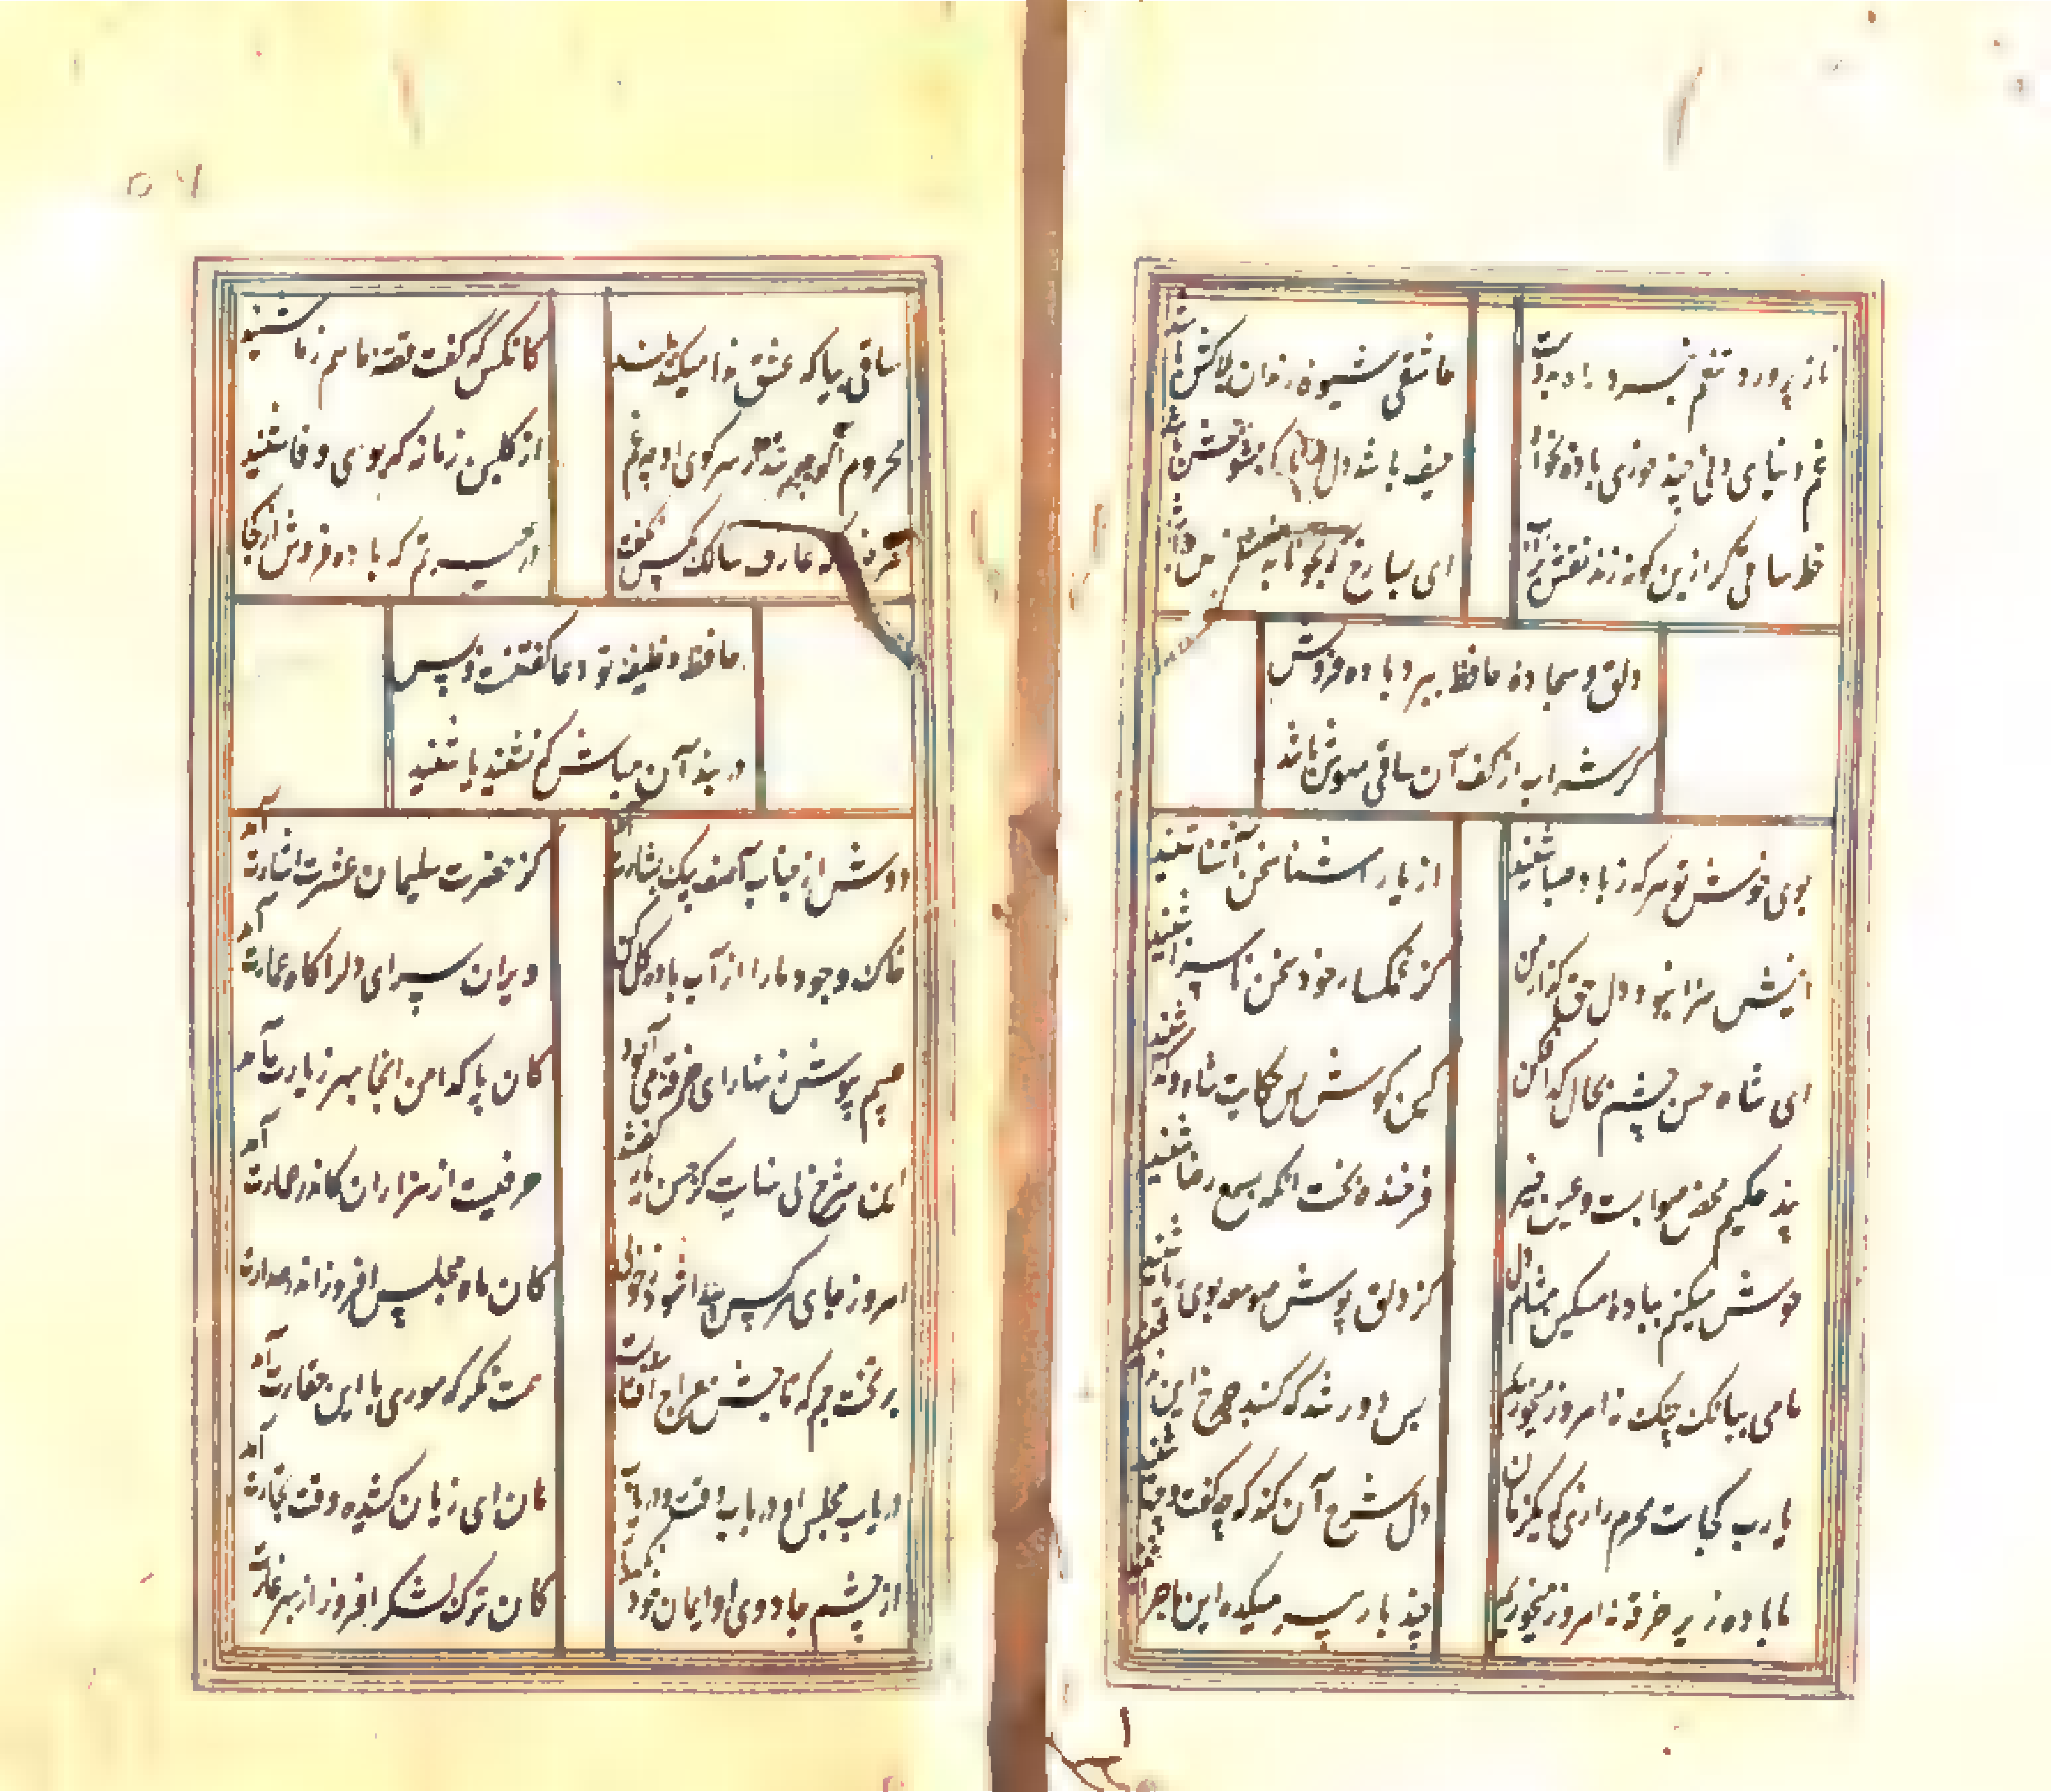 ناز پرورد تنعم نبرد راه بدوست
عاشقی شیوه رندان بلاکش باشد
غم دنیای دنی چند خوری باده بخور
حیف باشد دل دانا که مشوش باشد
خط ساقی گر ازین گونه زند نقش بر آب
ای بسا رخ که بخونابه منقش باشد
دلق و سجاده حافظ ببرد باده فروش
گر شراب از کف آن ساقی مهوش باشد
بوی خوش تو هر که ز باد صبا شنید
از یار آشنا سخن آشنا شنید
اینش سزا نبود دل حق گزار من
کز غمگسار خود سخن ناسزا شنید
ای شاه حسن چشم بحال گدا فکن
کین گوش بس حکایت شاه و گدا شنید
پند حکیم محض صوابست و عین خیر
فرخنده بخت آنکه بسمع رضا شنید
خوش میکنم بباده مشکین مشام دل
کز دلق پوش صومعه بوی ریا شنید
ما می ببانگ چنگ نه امروز میخوریم
بس دور شد که گنبد چرخ این صدا شنید
یارب کجاست محرم رازی که یکزمان
دل شرح آن کند که چه گفت و چها شنید
ما باده زیر خرقه نه امروز میخوریم
صد بار پیر میکده این ماجرا شنید
ساقی بیا که عشق ندا میکند بلند
کانکس که گفت قصه ما هم ز ما شنید
محروم اگر شدم ز سر کوی او چه غم
از گلبن زمانه که بوی وفا شنید
که عارف سالک بکس نگفت
در حیرتم که باده فروش از کجا
حافظ وظیفه تو دعا گفتنست و بس
در بند آن مباش که نشنید یا شنید
دوش از جناب آصف پیک بشارت آمد
کز حضرت سلیمان عشرت اشارت آمد
خاک وجود ما را از آب باده گل کن
ویران سرای دل را گاه عمارت آمد
عیبم بپوش زنهار ای خرقه می آلود
کان پاکدامن اینجا بهر زیارت آمد
این شرح بی نهایت کز حسن یار گفتند
حرفیست از هزاران کاندر عبارت آمد
امروز جای هر کس پیدا شود ز خوبان
کان ماه مجلس افروز اندر صدارت
بر تخت جم که تاجش معراج آفتابست
همت نگر که موری با این حقارت آمد
دریاب مجلس او دریاب وقت و دریاب
هان ای زیان کشیده وقت تجارت آمد
از چشم جادوی او ایمان خود نگهدار
کان ترک لشکر افروز از بهر غارت